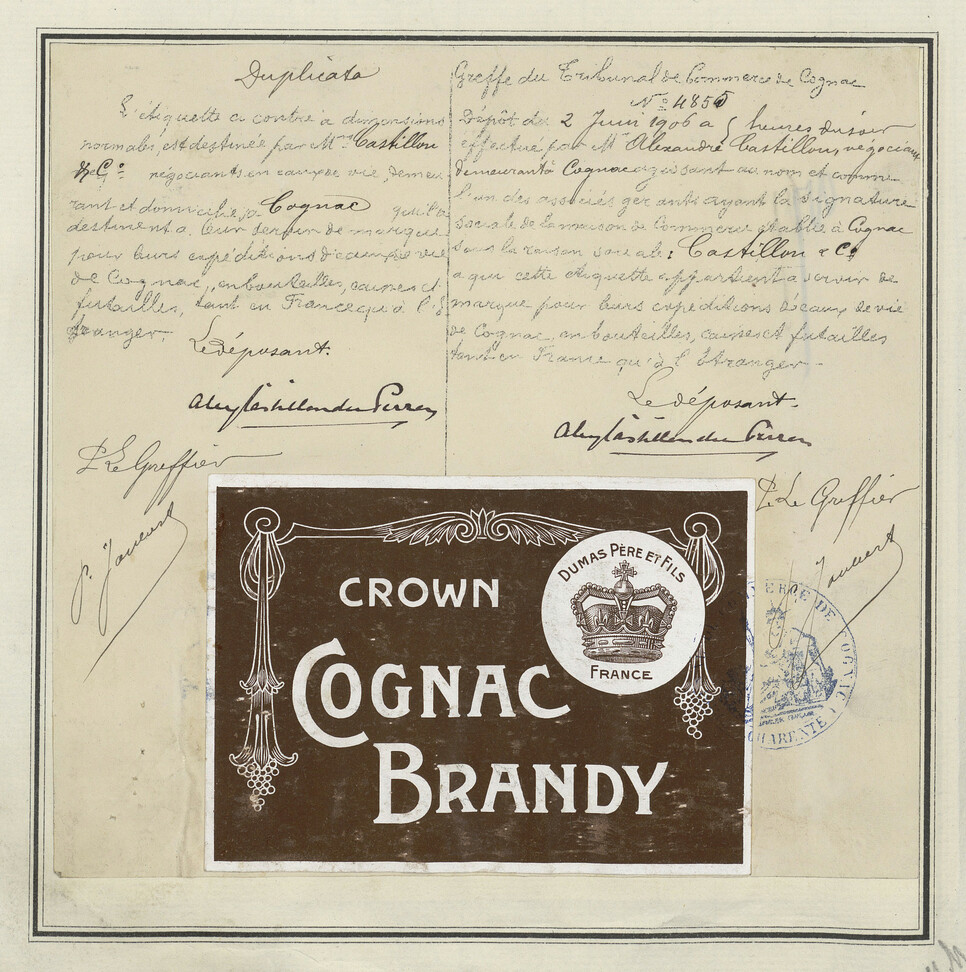 Duplicata
L'étiquette ci contre à dimensions
normales, est destinée par Mrs Castillon
& Co négociants en eaux de vie, demeu
rant et domiciliés à Cognac qu'ils
destinent à leur servir de marque
pour leurs expéditions d'eaux de vie
de Cognac, en bouteilles, caisses et
futailles, tant en France qu'à l'É
tranger.
Le déposant.
P. Le Greffier
Greffe du Tribunal de Commerce de Cognac
No 4855
Dépôt du 2 Juin 1906 à 5 heures du soir
effectué par Mr Alexandre Castillon, négociant
demeurant à Cognac agissant au nom et comme
l'un des associés gérants ayant la signature
sociale de la maison de Commerce établie à Cognac
sous la raison sociale: Castillon & Co
à qui cette étiquette appartient à servir de
marque pour leurs expéditions d'eaux de vie
de Cognac, en bouteilles, caisses et futailles
tant en France qu'à l'Étranger
Le déposant.
P. Le Greffier
CROWN
COGNAC
BRANDY
DUMAS PÈRE ET FILS
FRANCE
DE COGNAC
CHARENTE